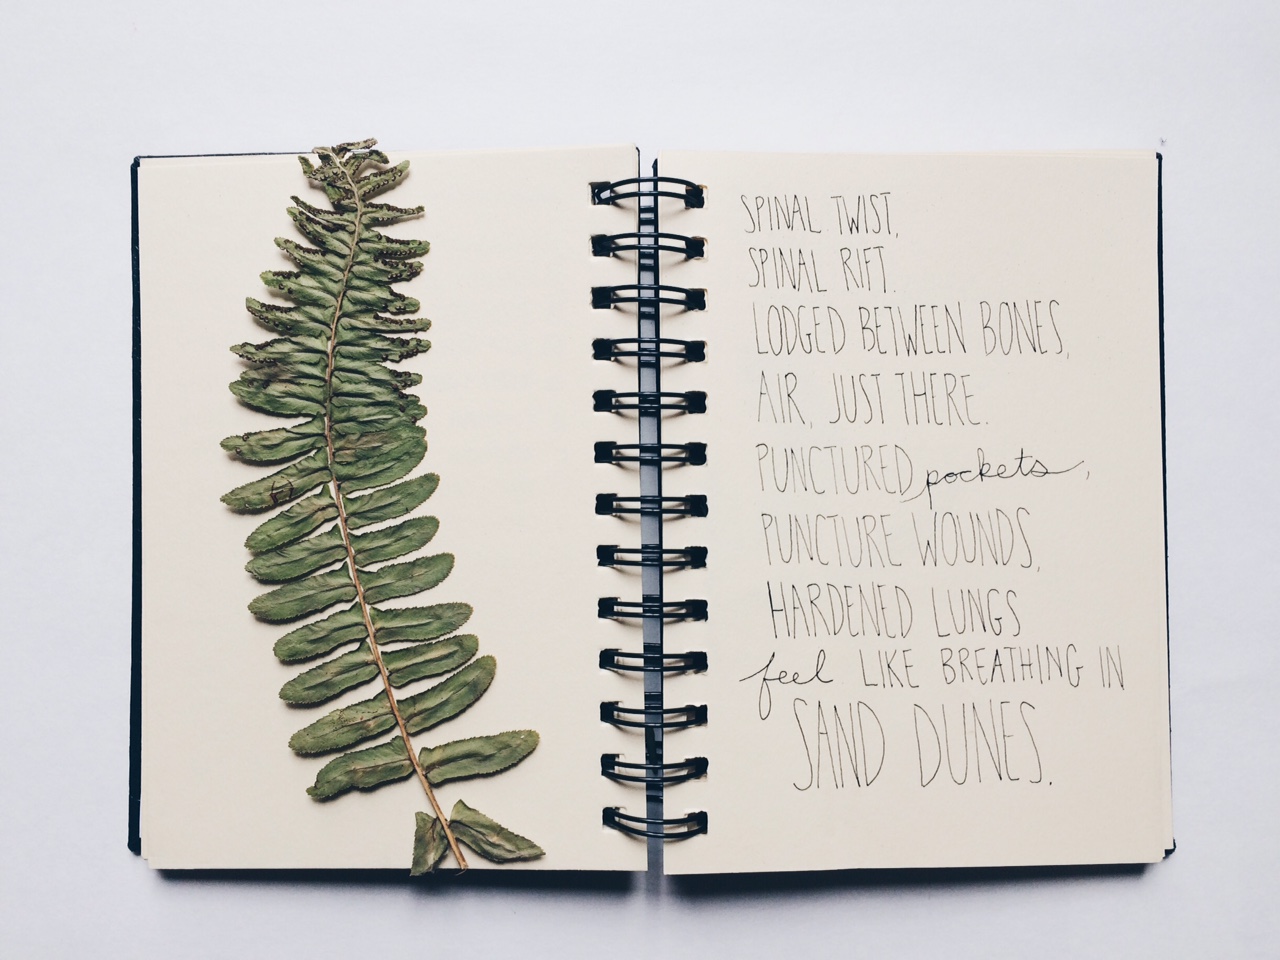 SPINAL TWIST,
SPINAL RIFT.
LODGED BETWEEN BONES,
AIR, JUST THERE.
PUNCTURED pockets,
PUNCTURE WOUNDS,
HARDENED LUNGS
feel LIKE BREATHING IN
SAND DUNES.